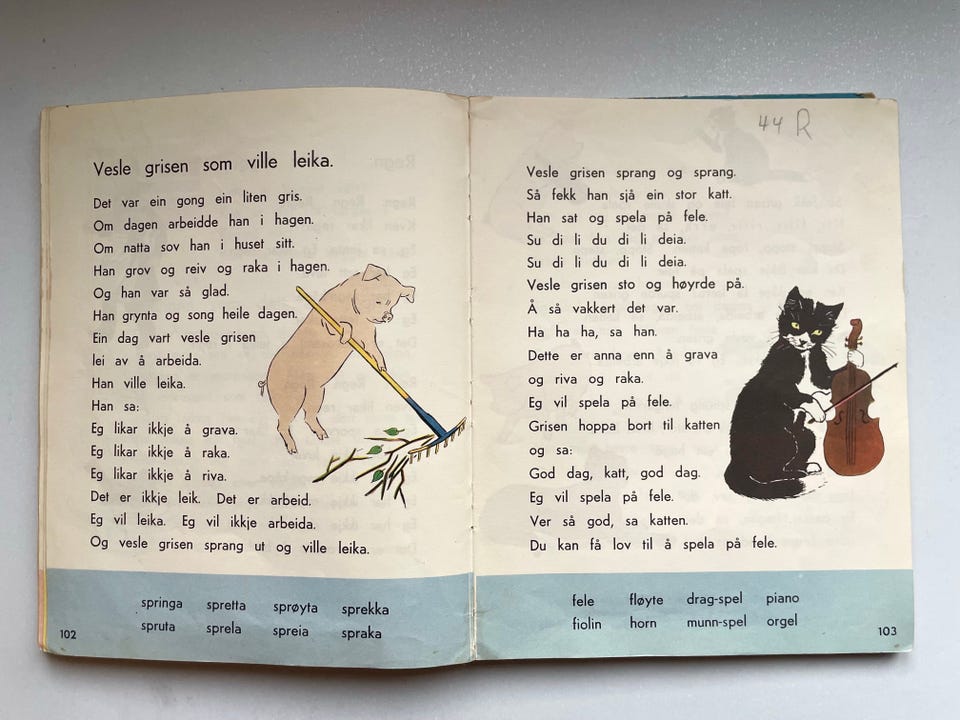 Vesle grisen som ville leika.
Det var ein gong ein liten gris.
Om dagen arbeidde han i hagen.
Om natta sov han i huset sitt.
Han grov og reiv og raka i hagen.
Og han var så glad.
Han grynta og song heile dagen.
Ein dag vart vesle grisen
lei av å arbeida.
Han ville leika.
Han sa:
Eg likar ikkje å grava.
Eg likar ikkje å raka.
Eg likar ikkje å riva.
Det er ikkje leik. Det er arbeid.
Eg vil leika. Eg vil ikkje arbeida.
Og vesle grisen sprang ut og ville leika.
springa spretta sprøyta sprekka
spruta sprela spreia spraka
102
44 R
Vesle grisen sprang og sprang.
Så fekk han sjå ein stor katt.
Han sat og spela på fele.
Su di li du di li deia.
Su di li du di li deia.
Vesle grisen sto og høyrde på.
Å så vakkert det var.
Ha ha ha, sa han.
Dette er anna enn å grava
og riva og raka.
Eg vil spela på fele.
Grisen hoppa bort til katten
og sa:
God dag, katt, god dag.
Eg vil spela på fele.
Ver så god, sa katten.
Du kan få lov til å spela på fele.
fele fløyte drag-spel piano
fiolin horn munn-spel orgel
103